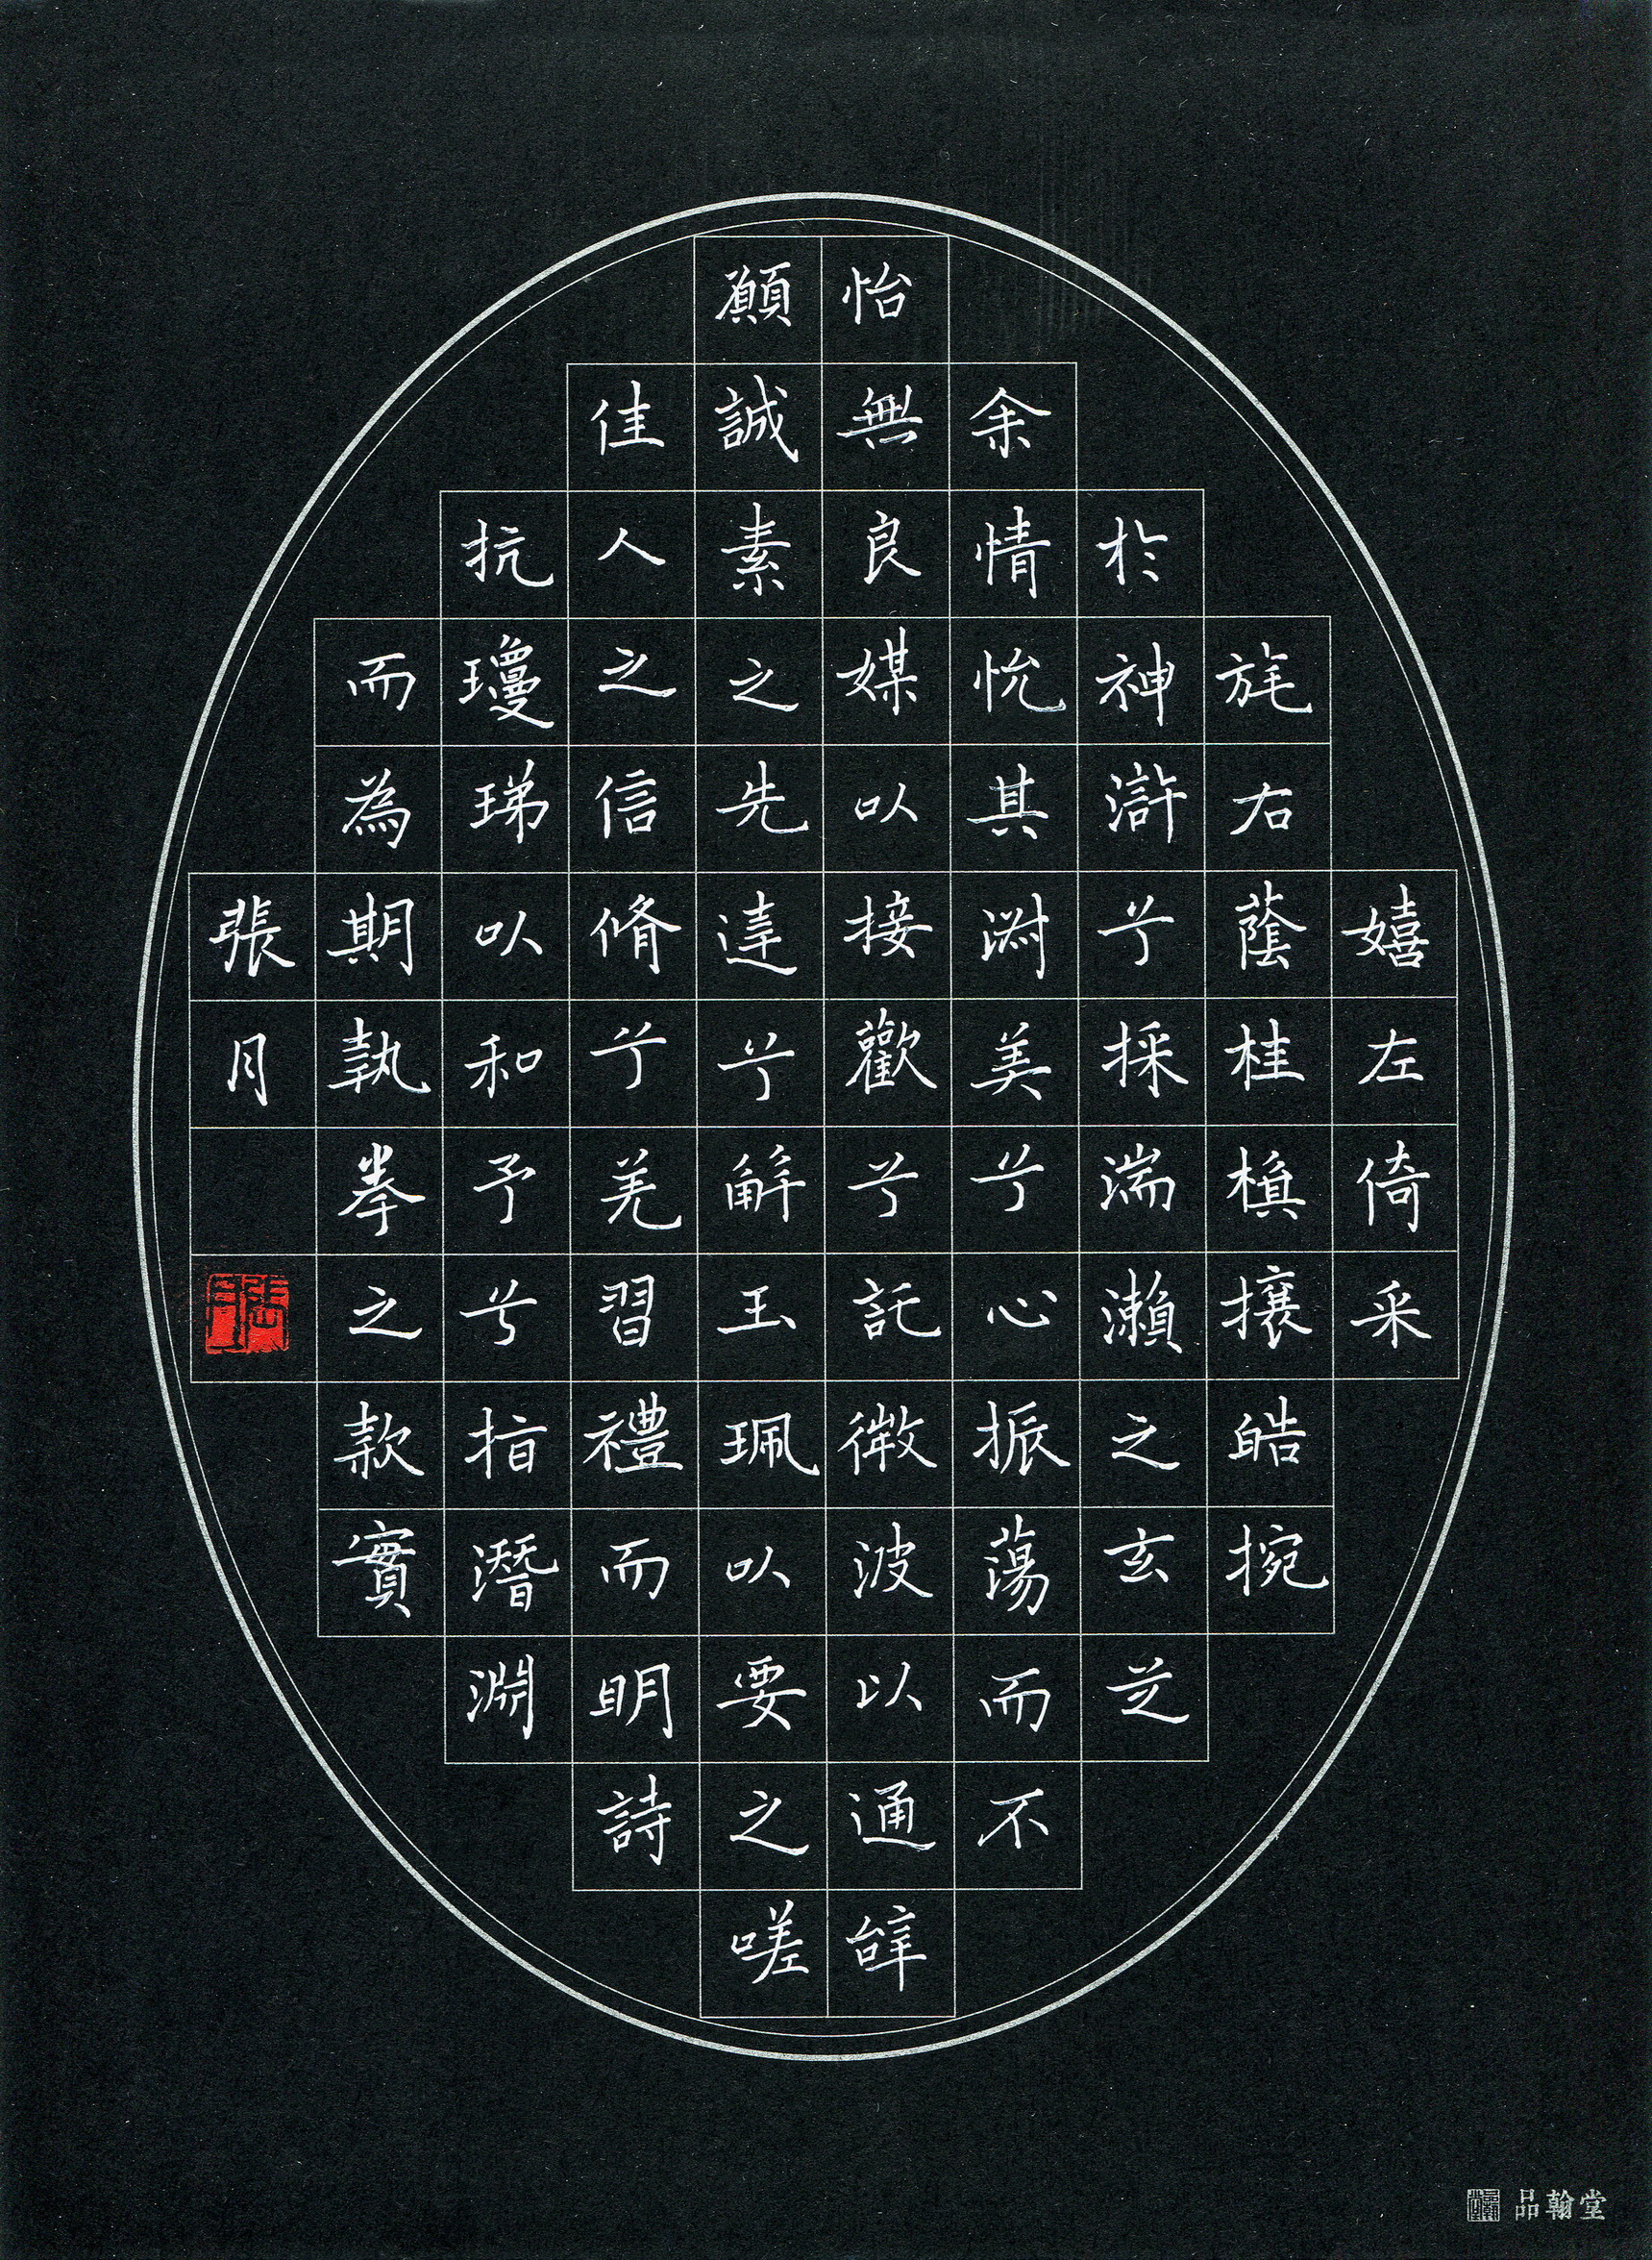 嬉左倚采
旄右蔭桂旗攘皓捥
於神滸兮採湍瀨之玄芝
余情悅其淑美兮心振蕩而不
怡無良媒以接歡兮託微波以通辭
願誠素之先達兮解玉珮以要之嗟
佳人之信脩兮羌習禮而明詩
抗瓊珶以和予兮指潛淵
而為期執拳之款實
張月
張月
品翰堂